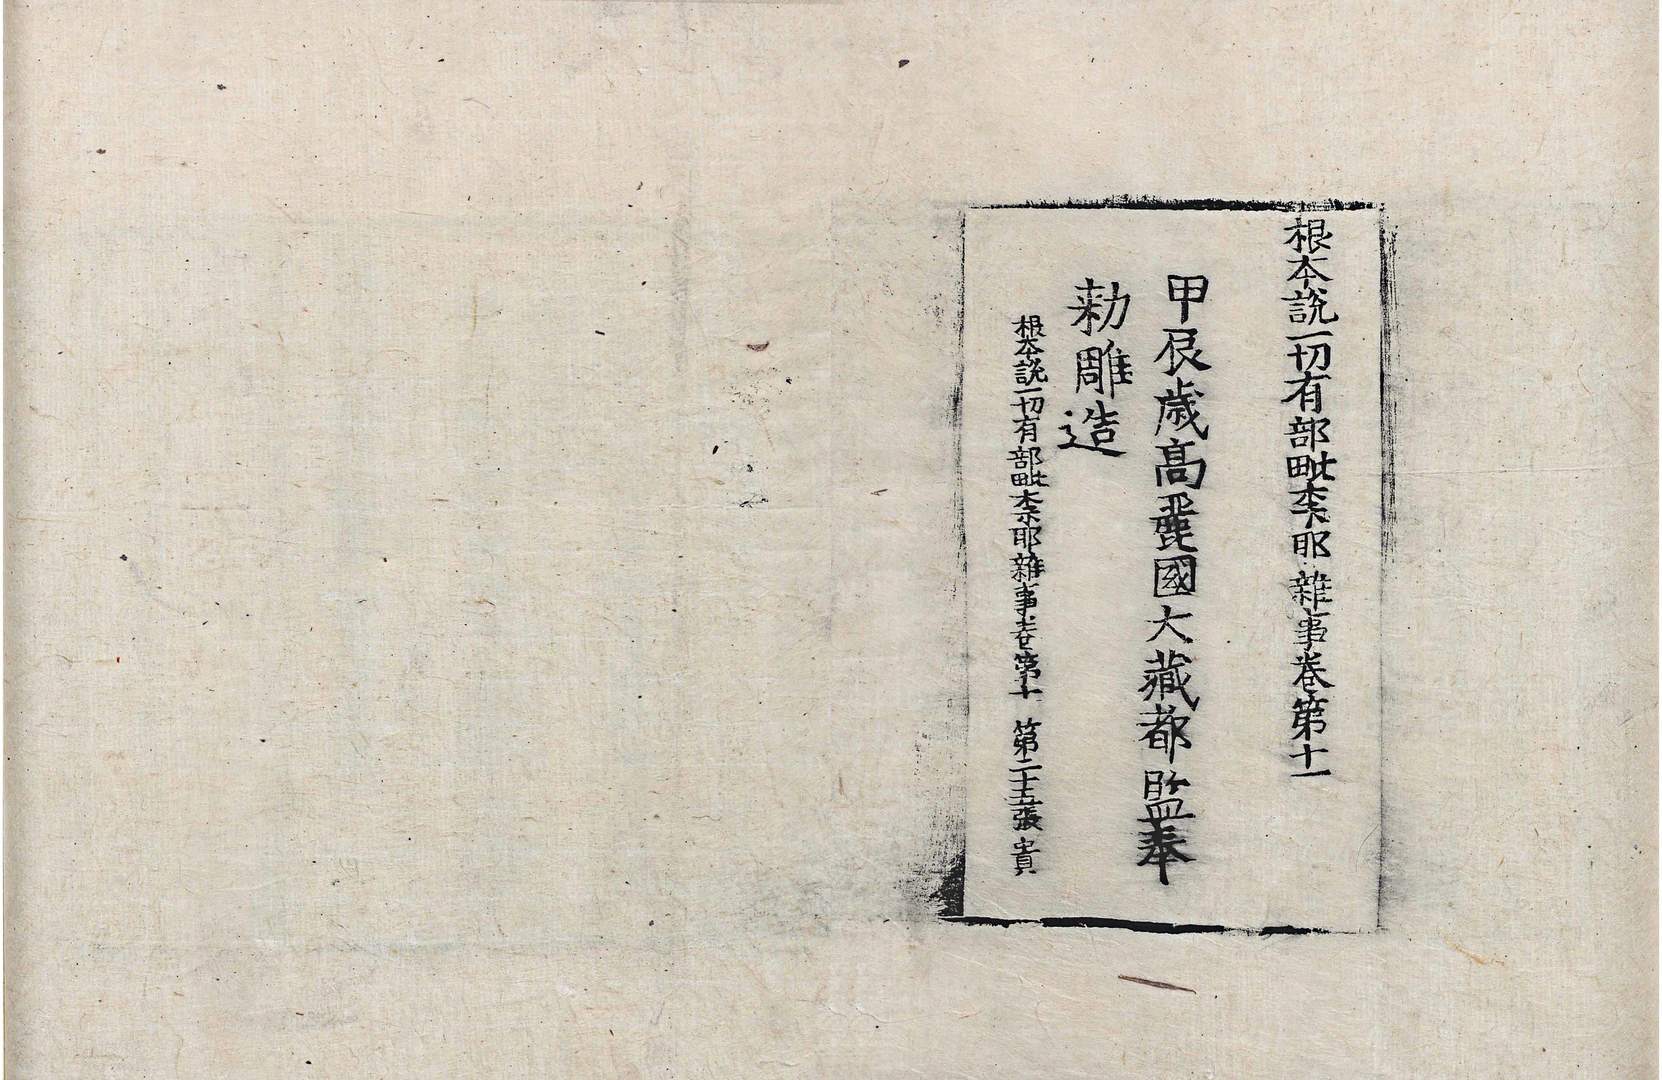 根本說一切有部毗柰耶雜事卷第十一
甲辰歲高麗國大藏都監奉
勑雕造
根本說一切有部毗柰耶雜事卷第十 第二十五張 貴